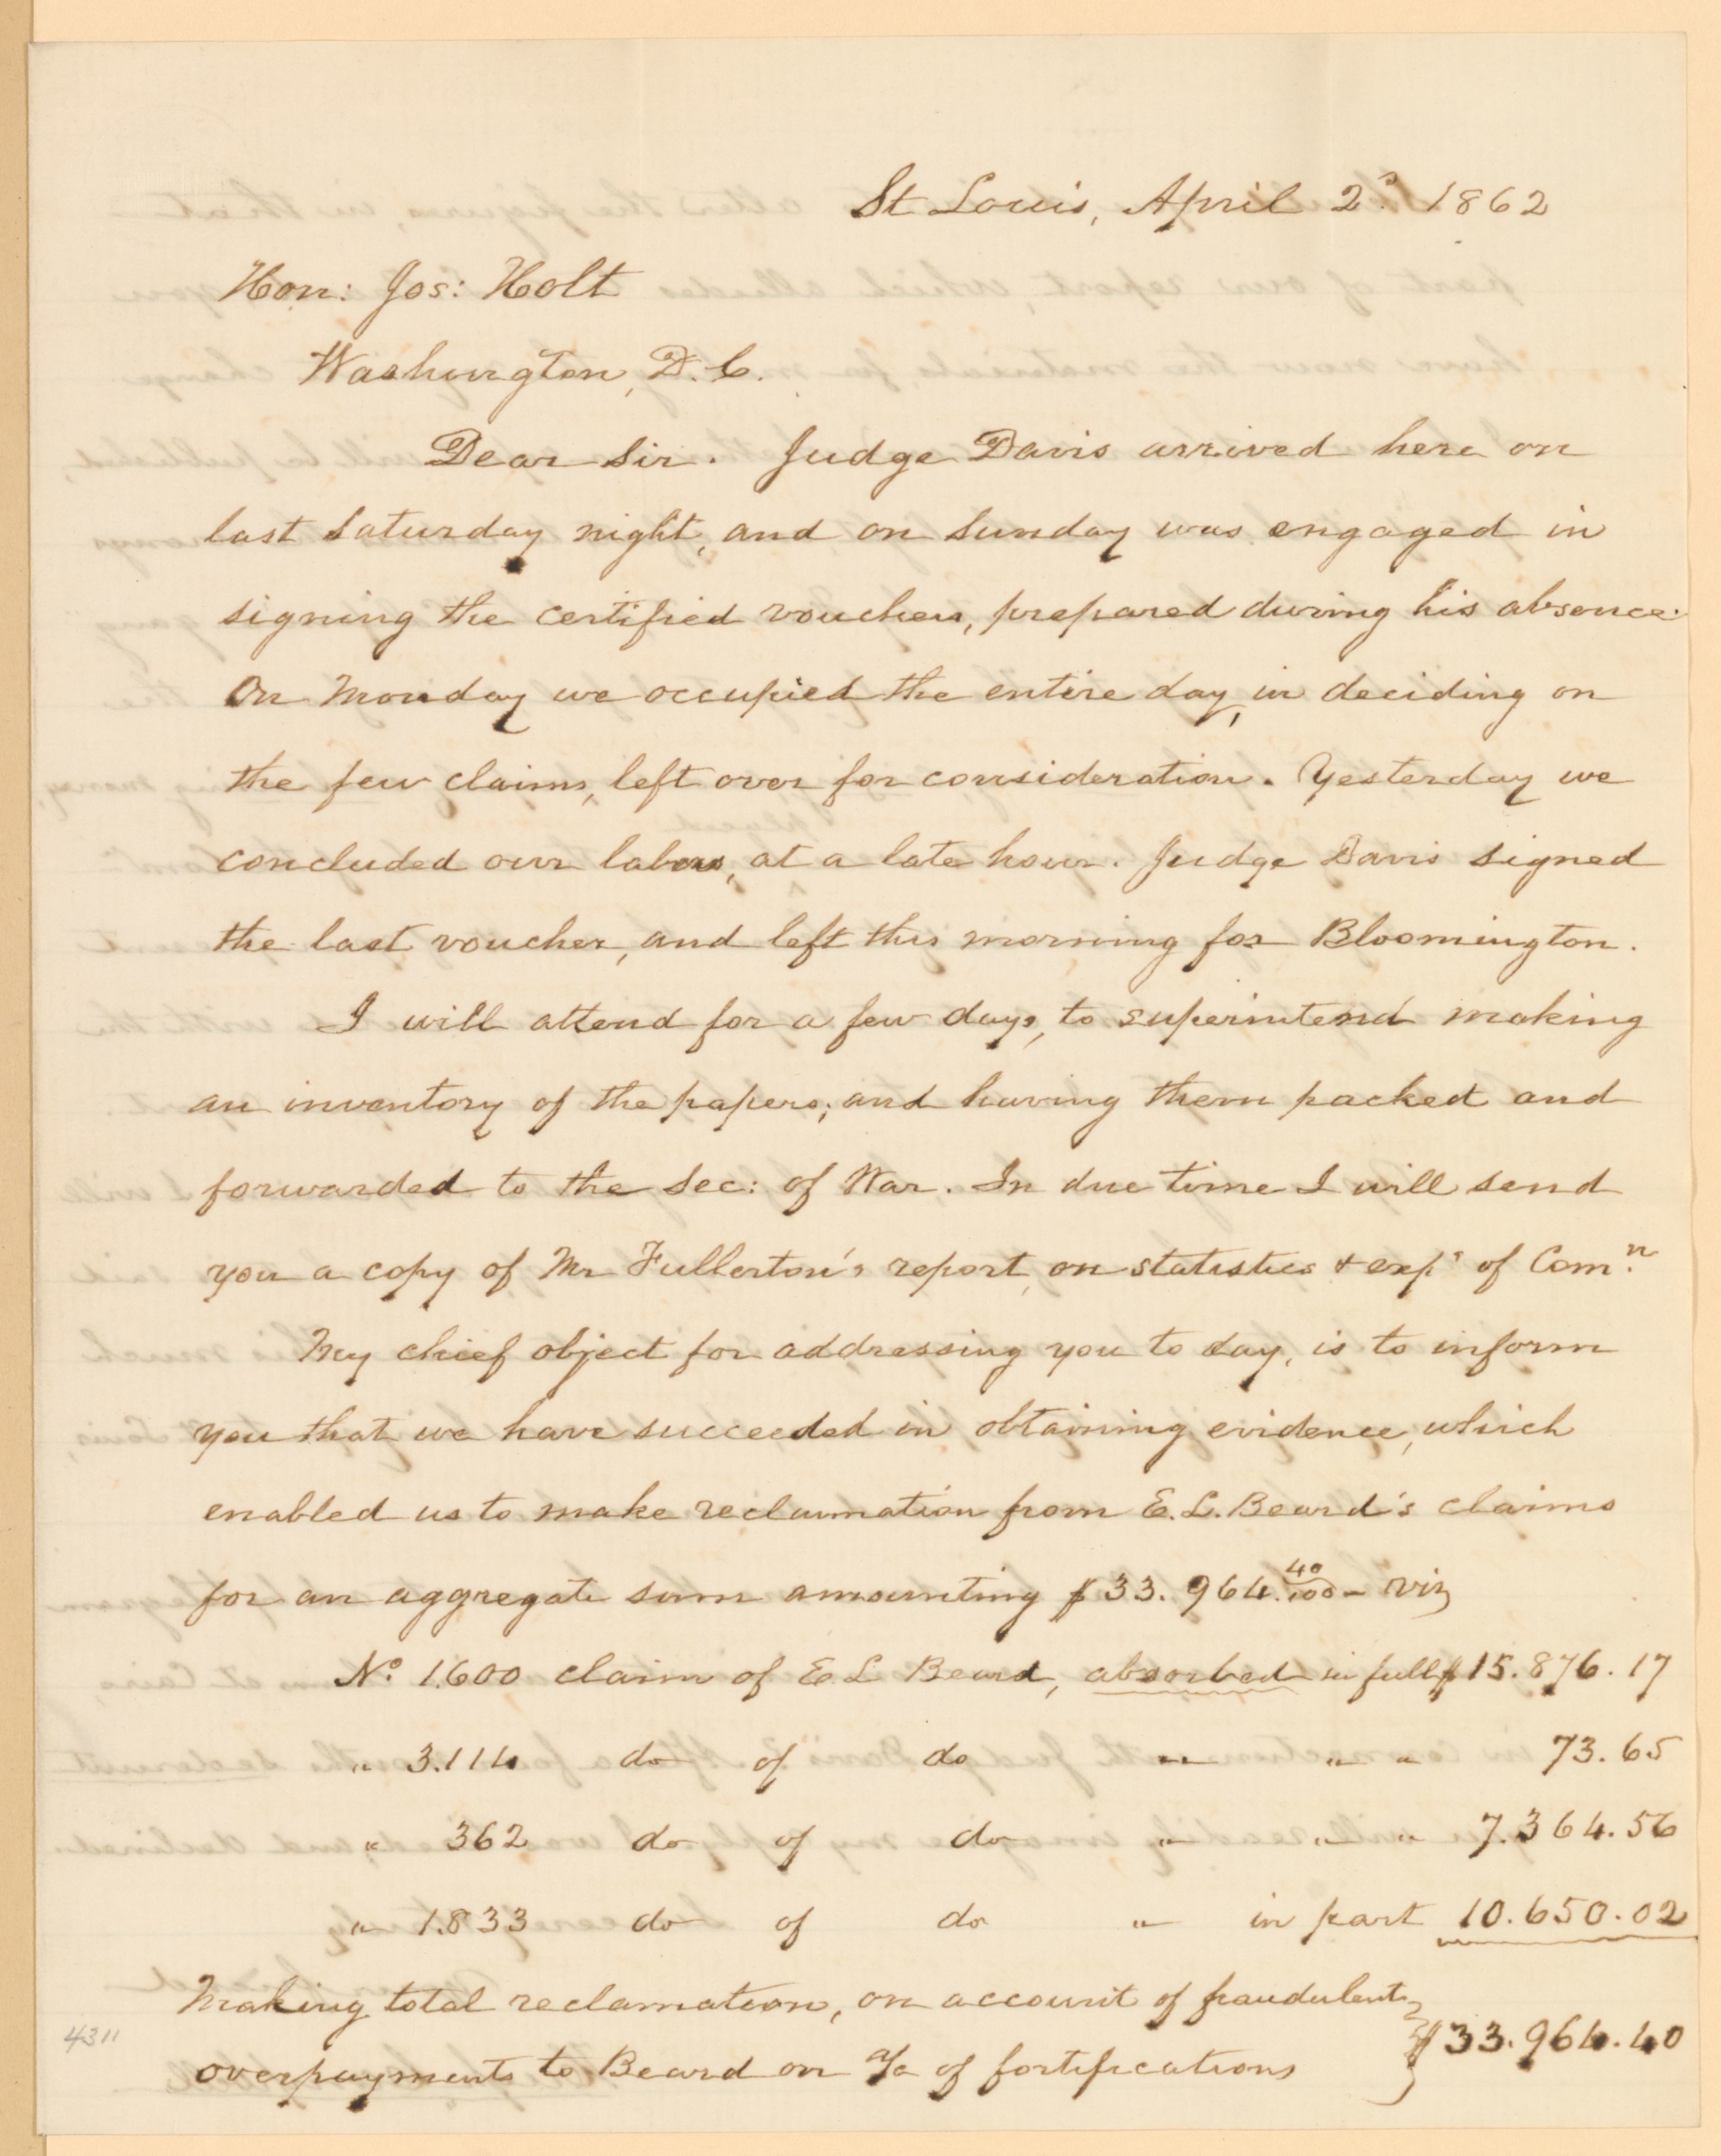 St Louis, April 2d. 1862
Hon: Jos: Holt
Washington, D.C.
Dear Sir. Judge Davis arrived here on
last Saturday night, and on Sunday was engaged in
signing the certified vouchers, prepared during his absence.
On Monday we occupied the entire day, in deciding on
the few claims, left over for consideration. Yesterday we
concluded our labors, at a late hour. Judge Davis signed
the last voucher, and left this morning for Bloomington.
I will attend for a few days, to superintend making
an inventory of the papers; and having them packed and
forwarded to the Sec: of War. In due time I will send
you a copy of Mr Fullerton's report, on statistics & exps of Comn.
My chief object for addressing you to day, is to inform
you that we have succeeded in obtaining evidence, which
enabled us to make reclamation from E.L. Beard's claims
for an aggregate sum amounting $33.964.40/100 - viz
No. 1.600 claim of E L Beard, absorbed in full $15.876.17
" 3.114 do of do " " " 73.65
" 362 do of do " " " 7.364.56
" 1.833 do of do " in part 10.650.02
Making total reclamation, on account of fraudulent
overpayments to Beard on a/c of fortifications } $33.964.40
4311